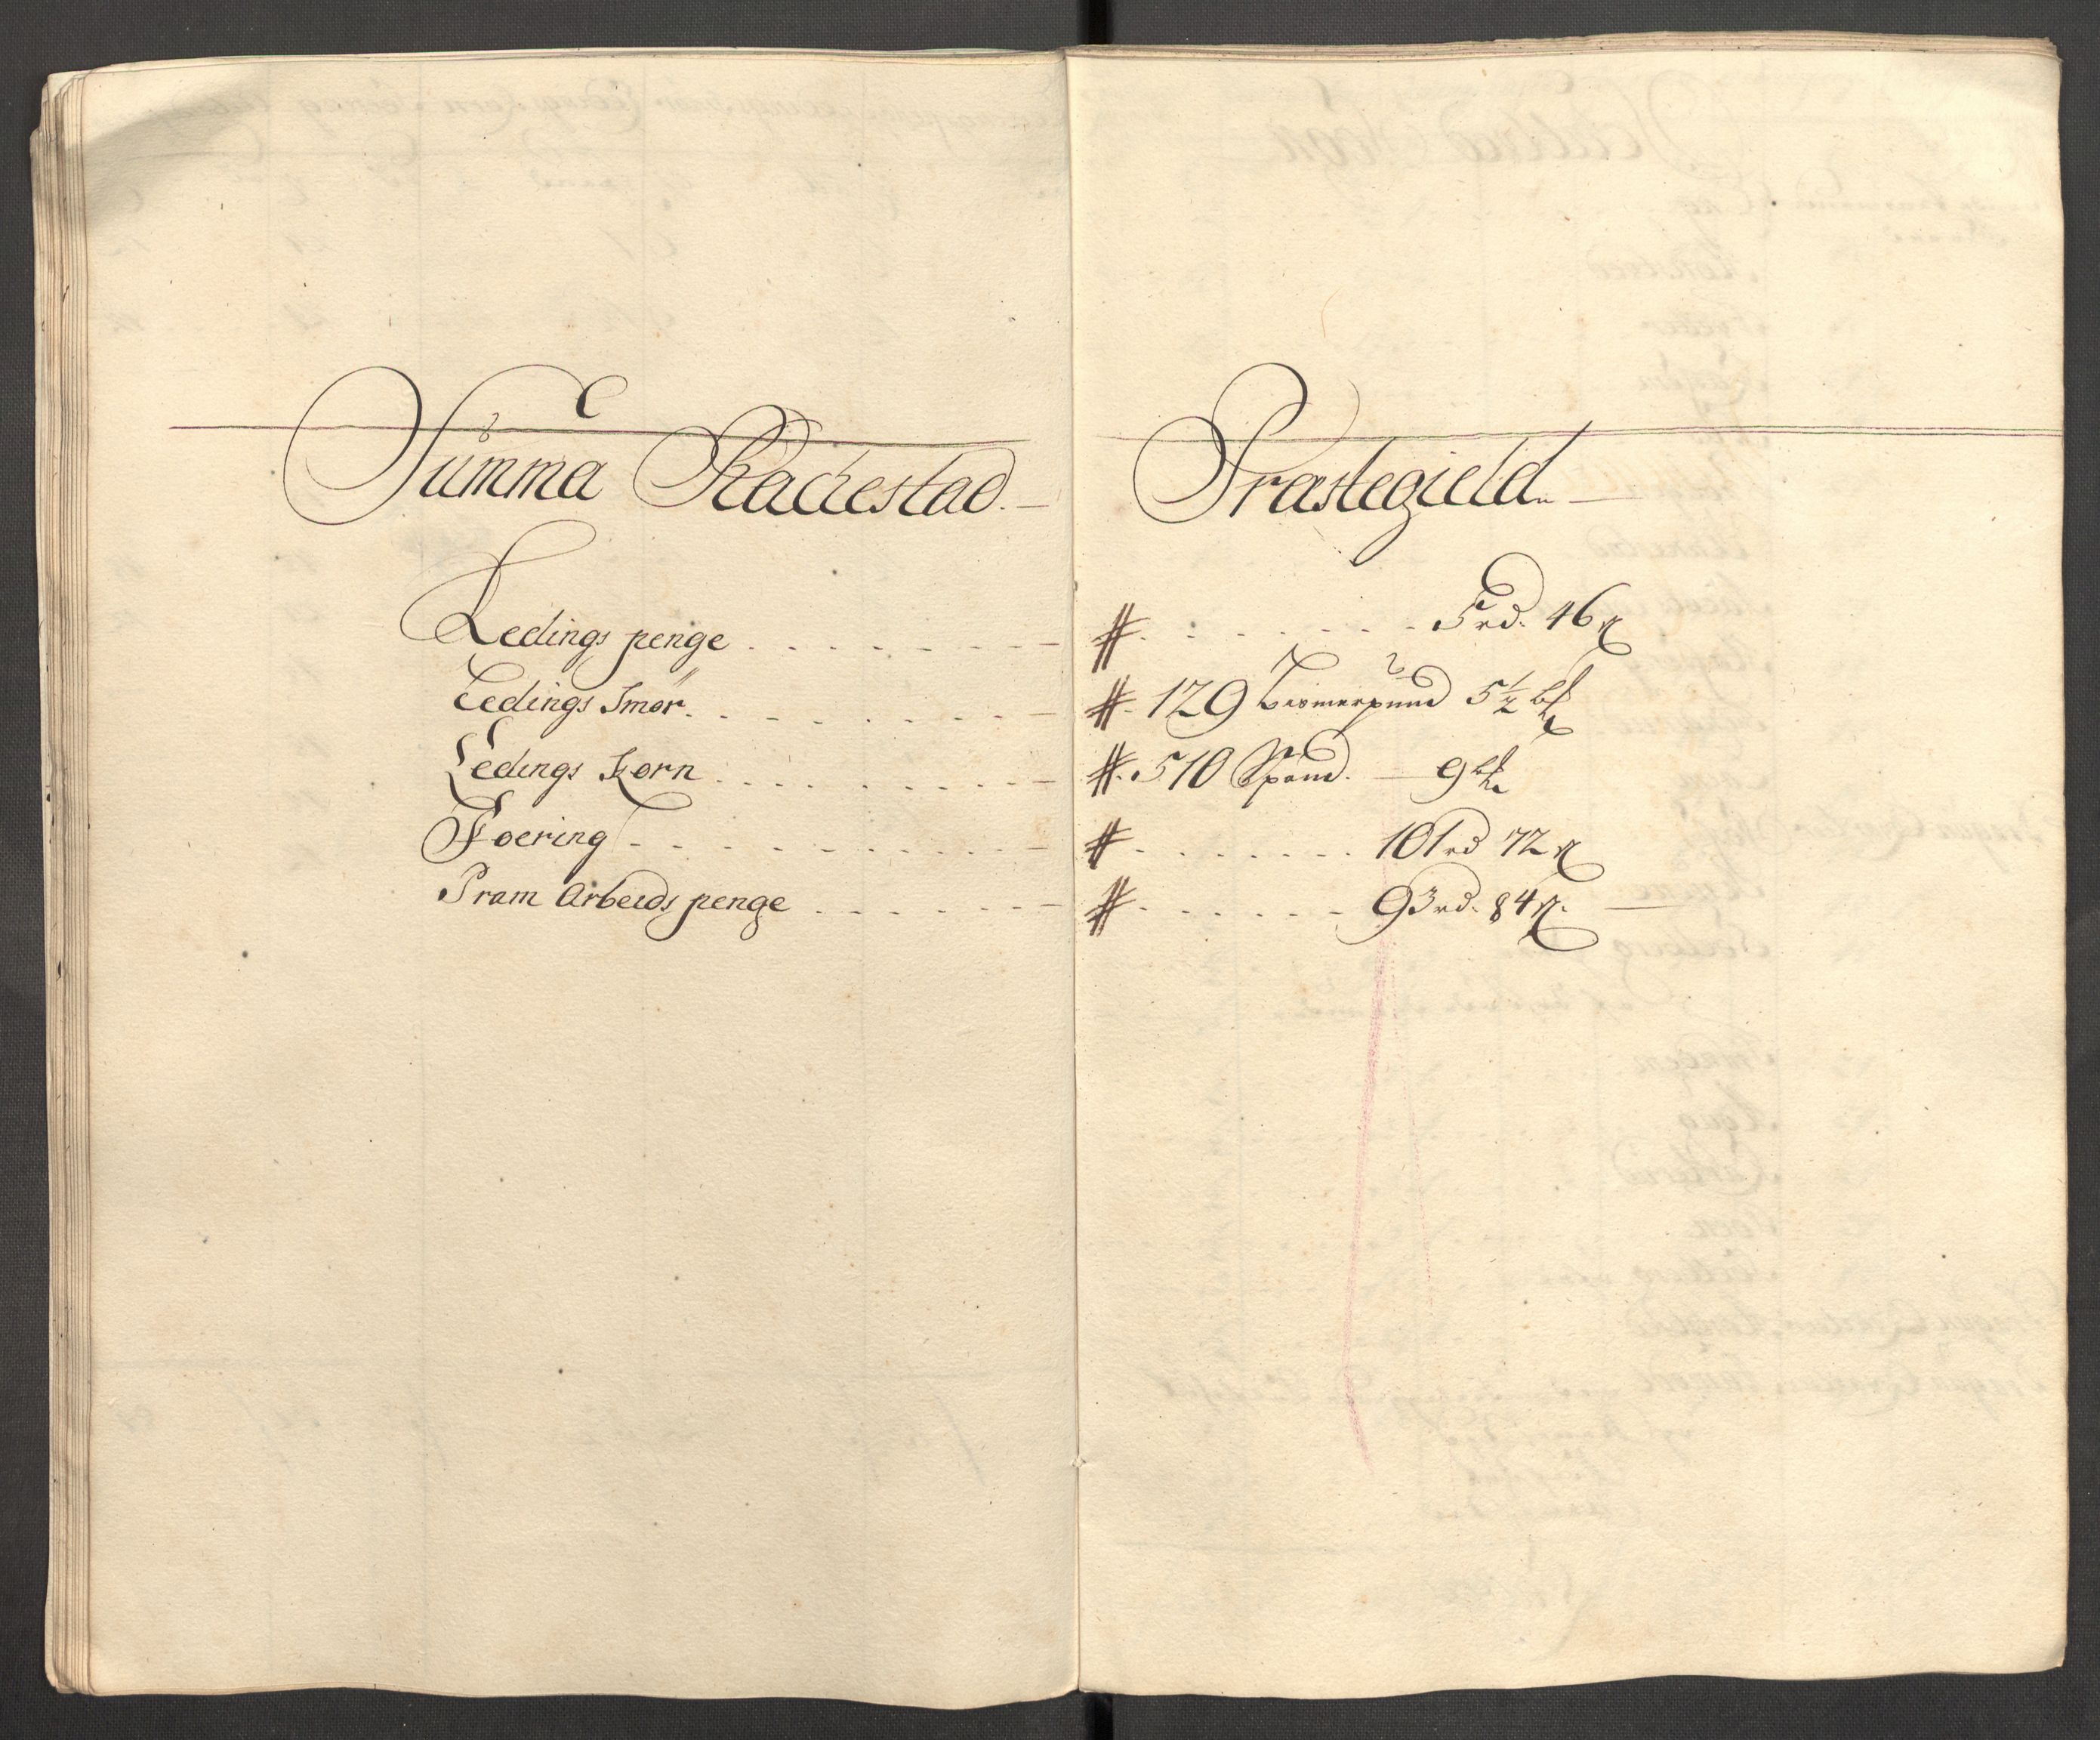 Summa Rackestad. Præstegield.
Ledings penge . . . . . . . 5 rd. 46 ß
Ledings Smør . . . . . . . 129 bismerpund 5½ lb
Ledings Korn . . . . . . . 510 Spand. — 9 lb
Foering . . . . . . . 101 rd 72 ß
Pram Arbeids penge . . . . . . . 93 rd. 84 ß.